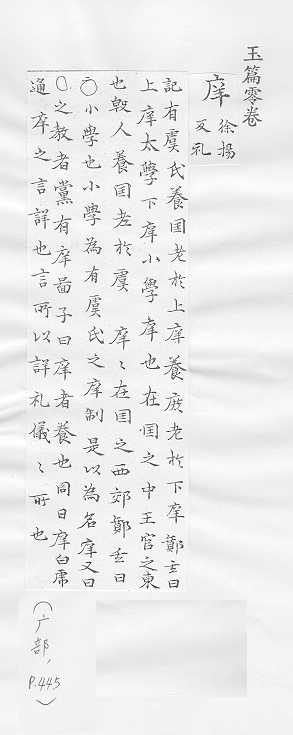 玉篇零卷
庠 徐揚
反礼
記有虞氏養国老於上庠養庻老於下庠鄭玄曰
上庠太學下庠小學庠也在国之中王宮之東
也殷人養国老於虞庠〻在国之西郊鄭玄曰
○小學也小學為有虞氏之庠制是以為名庠又曰
○之教者黨有庠孟子曰庠者養也同日庠白虎
通庠之言詳也言所以詳礼儀〻所也
(广部,
P.445)